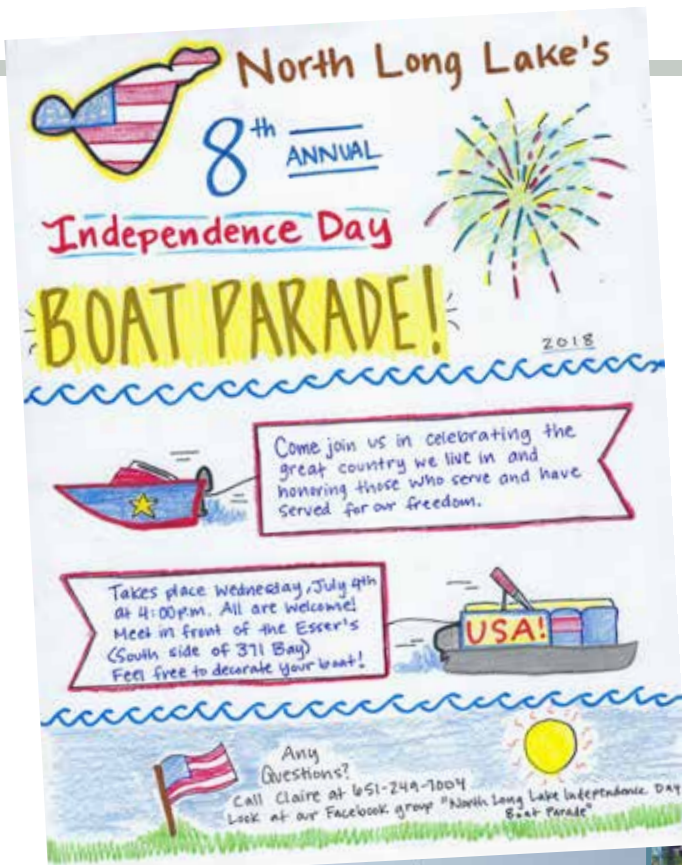 North Long Lake's
8th ANNUAL
Independence Day
BOAT PARADE!
2018
Come join us in celebrating the
great country we live in and
honoring those who serve and have
served for our freedom.
Takes place Wednesday, July 4th
at 4:00p.m. All are welcome!
Meet in front of the Esser's
(South side of 371 Bay)
Feel free to decorate your boat!
USA!
Any
Questions?
Call Claire at 651-249-7004
Look at our Facebook group "North Long Lake Independence Day
Boat Parade"